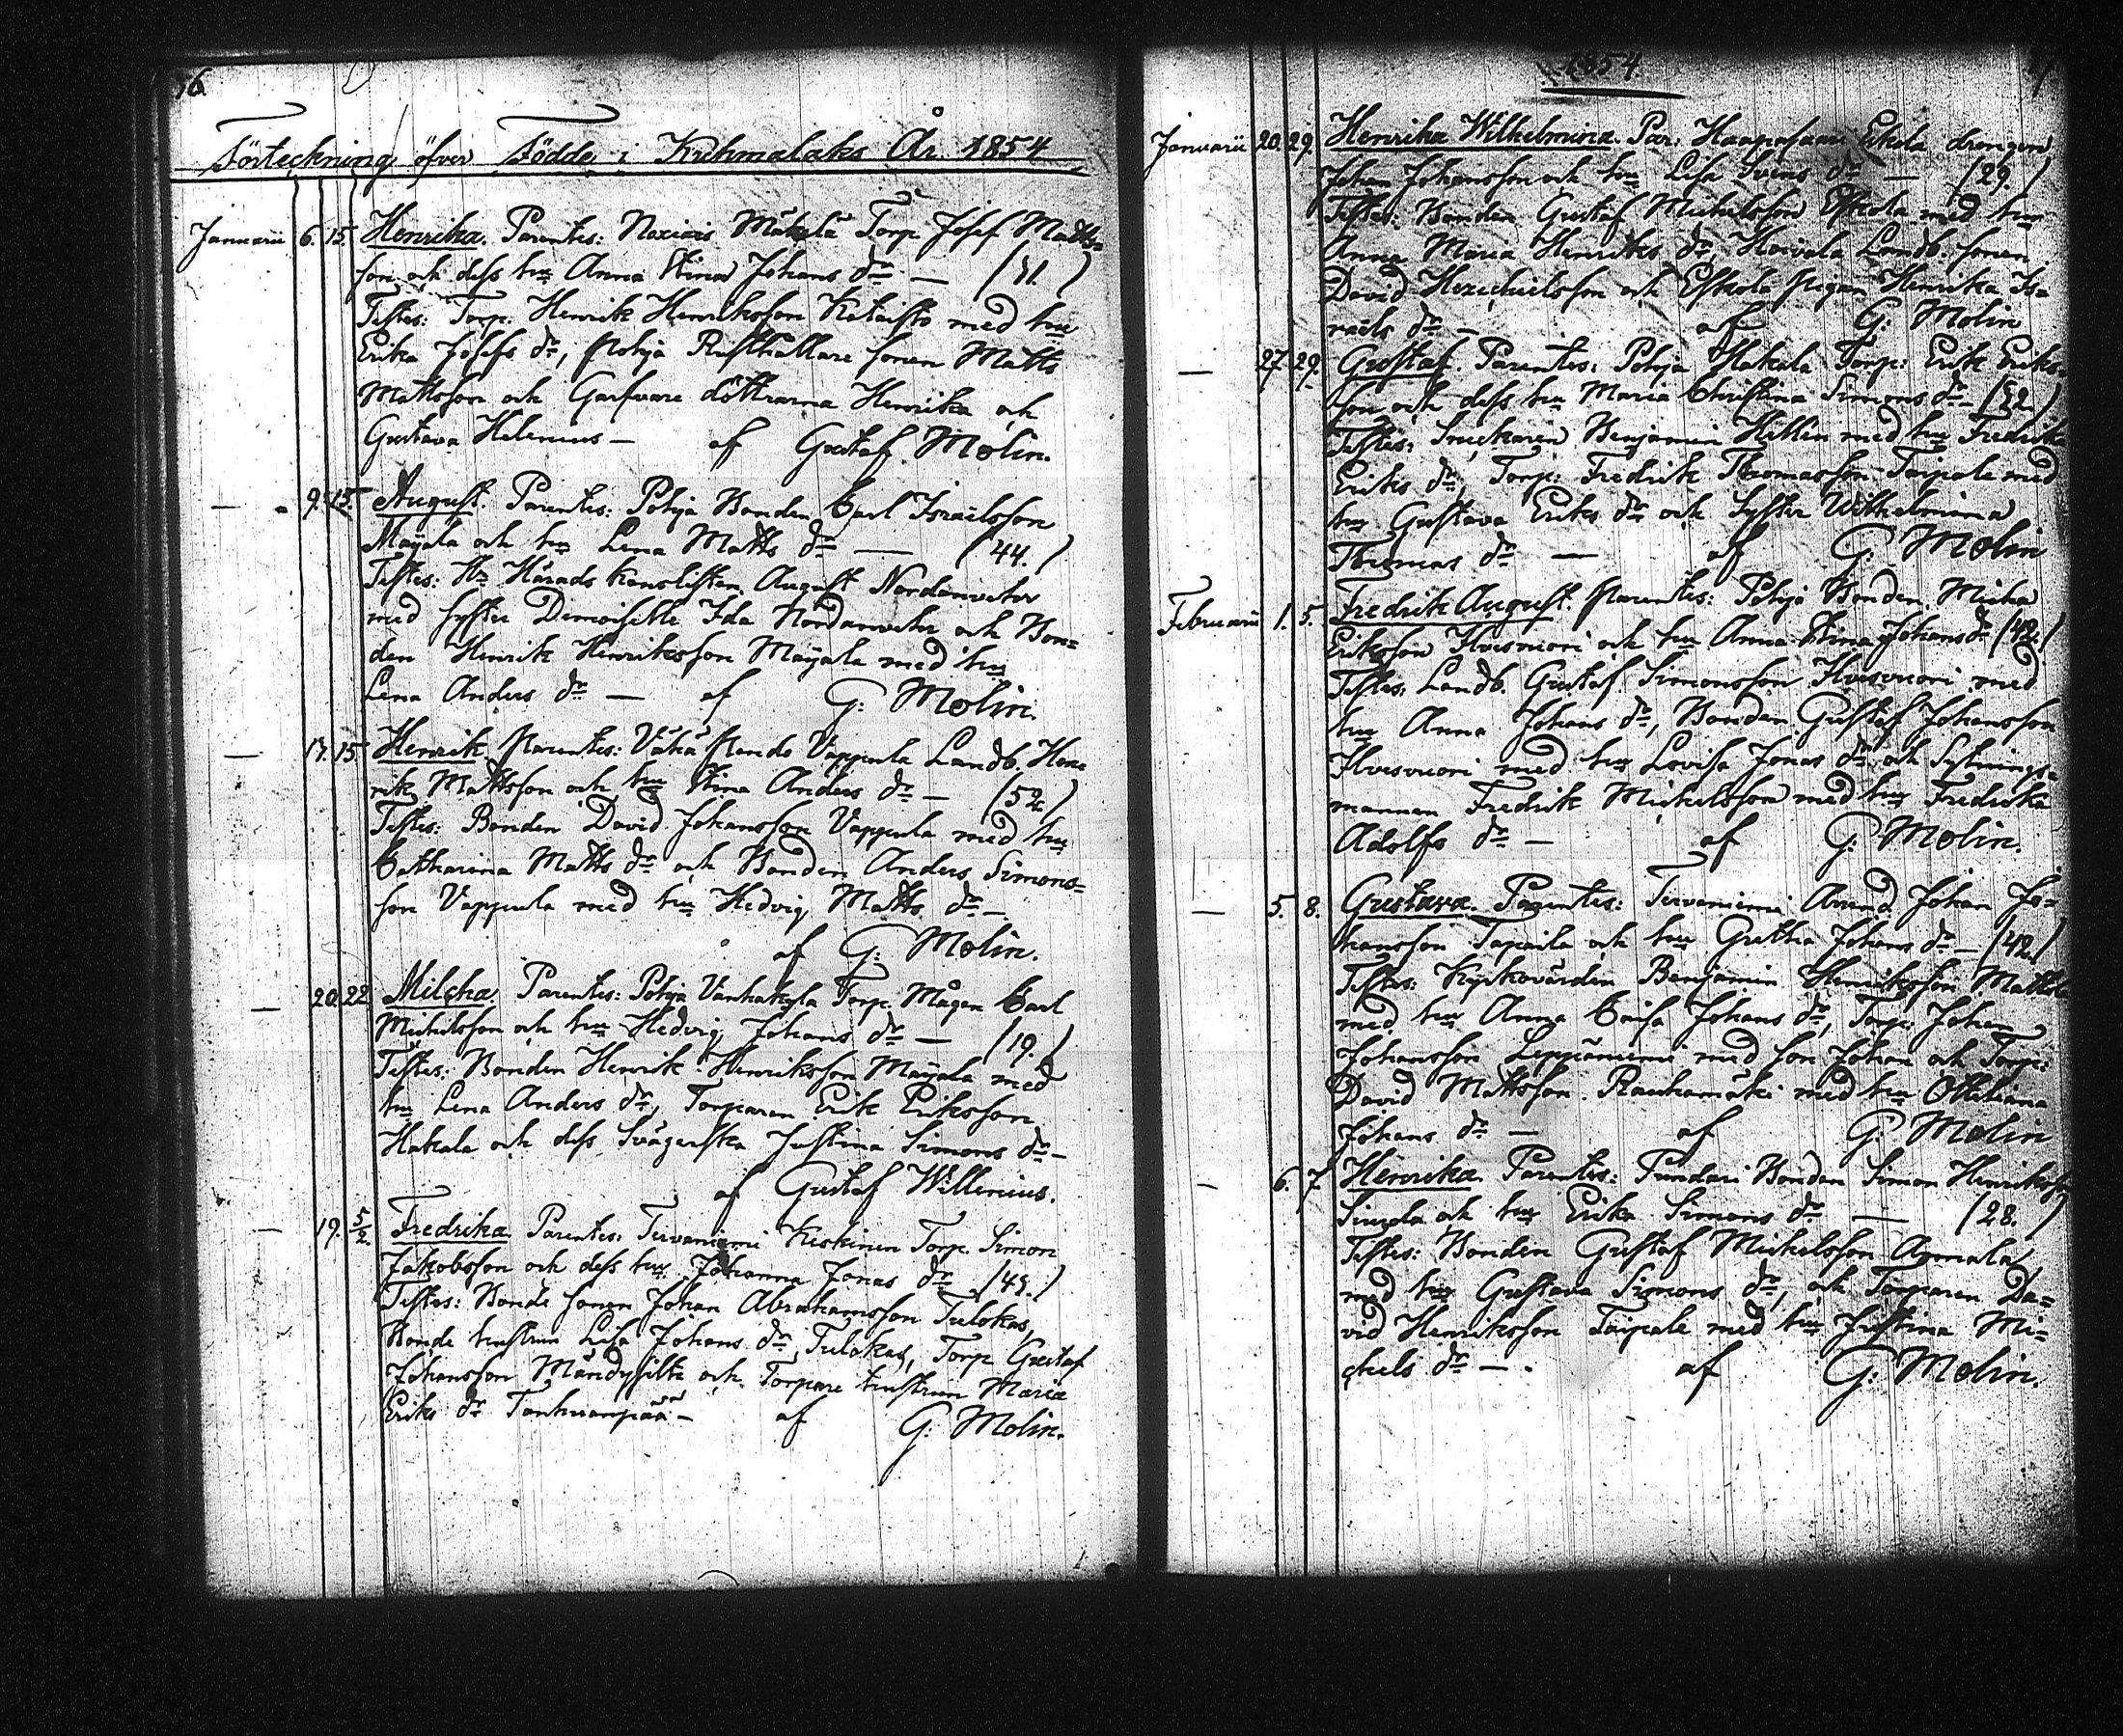 16
Förteckning öfver Födde i Kuhmalaks År 1854
Januarii 6. 15. Henrika. Parentes: Mäkelä Torp. Josef Matts-
son och dess hu Anna Stina Johans dr — (31.)
Testes: Torp. Henrik Henriksson Kataisto med hu
Erika Josefs dr, Pohja Rusthållare sonen Matts
Mattsson och Garfvare döttrarna Henrika och
Gustava Helenius — af Gustaf Molin.
— 9. 15. August. Parentes: Pohja Bonden Carl Israelsson
Mäyälä och hu Lena Matts dr — (44.)
Testes: Hr Härads kanslisten August Nordenvetn
med syster Demoiselle Ida Nordanvetn och Bon=
den Henrik Henriksson Mäyälä med hu
Lena Anders dr — af G: Molin.
— 15 Henrik. Parentes: Vähä Pende Vappula Landb. Hen
rik Mattsson och hu Stina Anders dr — (52)
Testes: Bonden David Johansson Vappula med hu
Catharina Matts dr och Bonden Anders Simons=
son Vappula med hu Hedvig Matts dr —
af G: Molin.
— 20. 22 Milcha. Parentes: Pohja Vanhakylä Torp. Mågen Carl
Michelsson och hu Hedvig Johans dr — (19.)
Testes: Bonden Henrik Henriksson Mäyälä med
hu Lena Anders dr, Torparen Erik Eriksson
Hakala och dess Svägerska Justina Simons dr —
af Gustaf Willenius.
— 19. 5/2. Fredrika. Parentes: Tervaniemi Keskinen Torp. Simon
Jakobsson och dess hu Johanna Jonas dr (49.)
Testes: Bonde sonen Johan Abrahamsson Tulokas,
Bonde hustrun Lisa Johans dr Tulokas, Torp. Gustaf
Johansson Mändysilta och Torpare hustrun Maria
Eriks dr Tonkurinpää — af G: Molin.
1854
Januarii 20. 29. Henrika Wilhelmina. Par: Haapasaari Eskola drängen
Johan Johansson och hu Lisa Svens dr — (29.)
Testes: Bonden Gustaf Michelsson Eskola med hu
Anna Maria Henriks dr, Hoivala Landb. sonen
David Hezechielsson och Eskola Pigan Henrika Is=
raels dr — af G: Molin
— 27. 29. Gustaf. Parentes: Pohja Hakala Torp: Erik Eriks-
son och dess hu Maria Christina Simons dr — (32)
Testes: Snickaren Benjamin Hellin med hu Fredrika
Eriks dr, Torp: Fredrik Thomasson Taipale med
hu Gustava Eriks dr och Syster Wilhelmina
Thomas dr — af G: Molin
Februarii 1. 5. Fredrik August. Parentes: Pohja Bonden Micha
Eriksson Ilvesvuori och hu Anna Stina Johans dr (42.)
Testes: Landb. Gustaf Simonsson Ilvesvuori med
hu Anna Johans dr, Bonden Gustaf Johansson
Ilvesvuori med hu Lovisa Jonas dr och Sytnings=
mannen Fredrik Michelsson med hu Fredrika
Adolfs dr — af G: Molin.
— 5. 8. Gustava. Parentes: Tervaniemi Arrend. Johan Jo=
hansson Tapaila och hu Gretha Johans dr — (42)
Testes: Kyrkovärden Benjamin Henriksson Mattila
med hu Anna Caisa Johans dr, Torp. Johan
Johansson Leppäniemi med son Johan och Torp:
David Mattsson Rauhamäki med hu Otteliana
Johans dr — af G: Molin
— 6. 7 Henrika. Parentes: Pundari Bonden Simon Henriksson
och hu Erika Simons dr — (28.)
Testes: Bonden Gustaf Mickelsson Anmala
med hu Gustava Simons dr, och Torparen Da=
vid Henriksson Taipale med hu Justina Mi=
chels dr — . af G: Molin.